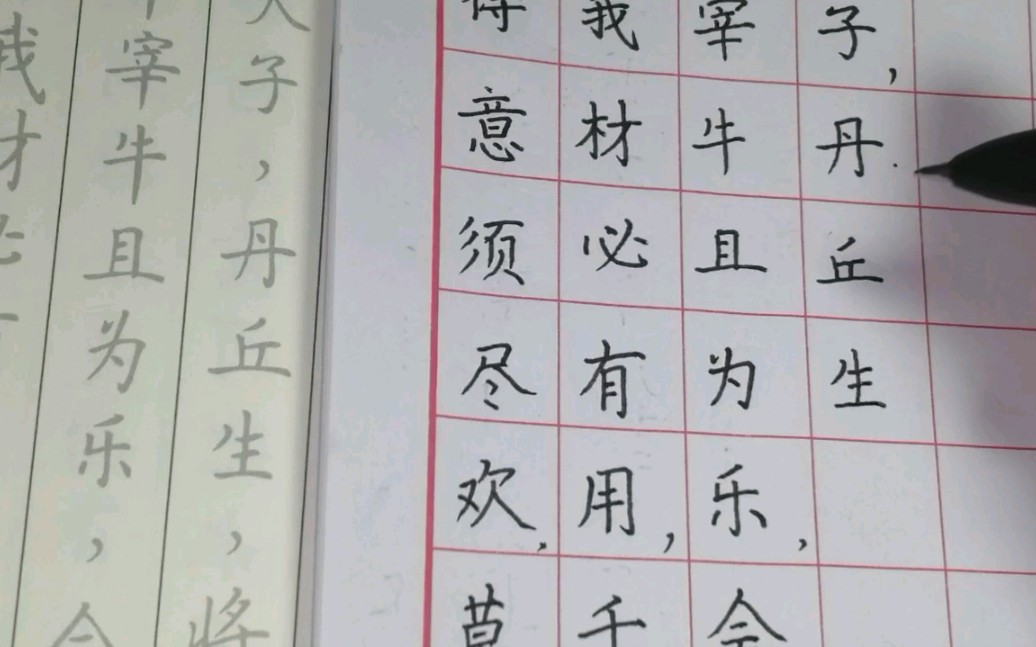 我材必
宰牛且为乐，会
夫子，丹丘生，将
得意须尽欢，莫
我材必有用，千
宰牛且为乐，会
子，丹丘生